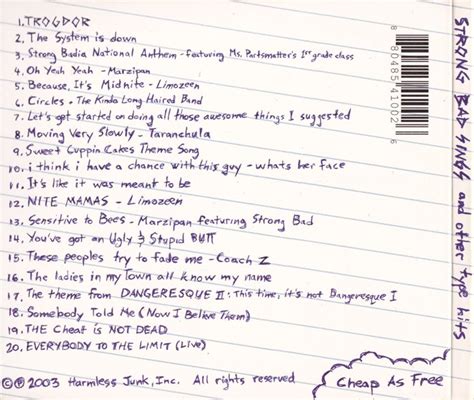 1. TROGDOR
2. The System is down
3. Strong Badia National Anthem - featuring Ms. Partsmatter's 1st grade class
4. Oh Yeah Yeah - Marzipan
5. Because, It's Midnite - Limozeen
6. Circles - The Kinda Long Haired Band
7. Let's get started on doing all those awesome things I suggested
8. Moving Very Slowly - Taranchula
9. Sweet Cuppin Cakes Theme Song
10. i think i have a chance with this guy - whats her face
11. It's like it was meant to be
12. NITE MAMAS - Limozeen
13. Sensitive to Bees - Marzipan featuring Strong Bad
14. You've got an Ugly & Stupid BUTT
15. These peoples try to fade me - Coach Z
16. The ladies in my Town all know my name
17. The theme from DANGERESQUE II: This time, it's not Dangeresque I
18. Somebody Told Me (Now I Belive Them)
19. THE Cheat is NOT DEAD
20. EVERYBODY TO THE LIMIT (LIVE)
©℗ 2003 Harmless Junk, Inc. All rights reserved
Cheap As Free
8 80485 41002 6
STRONG BAD SINGS and other type hits